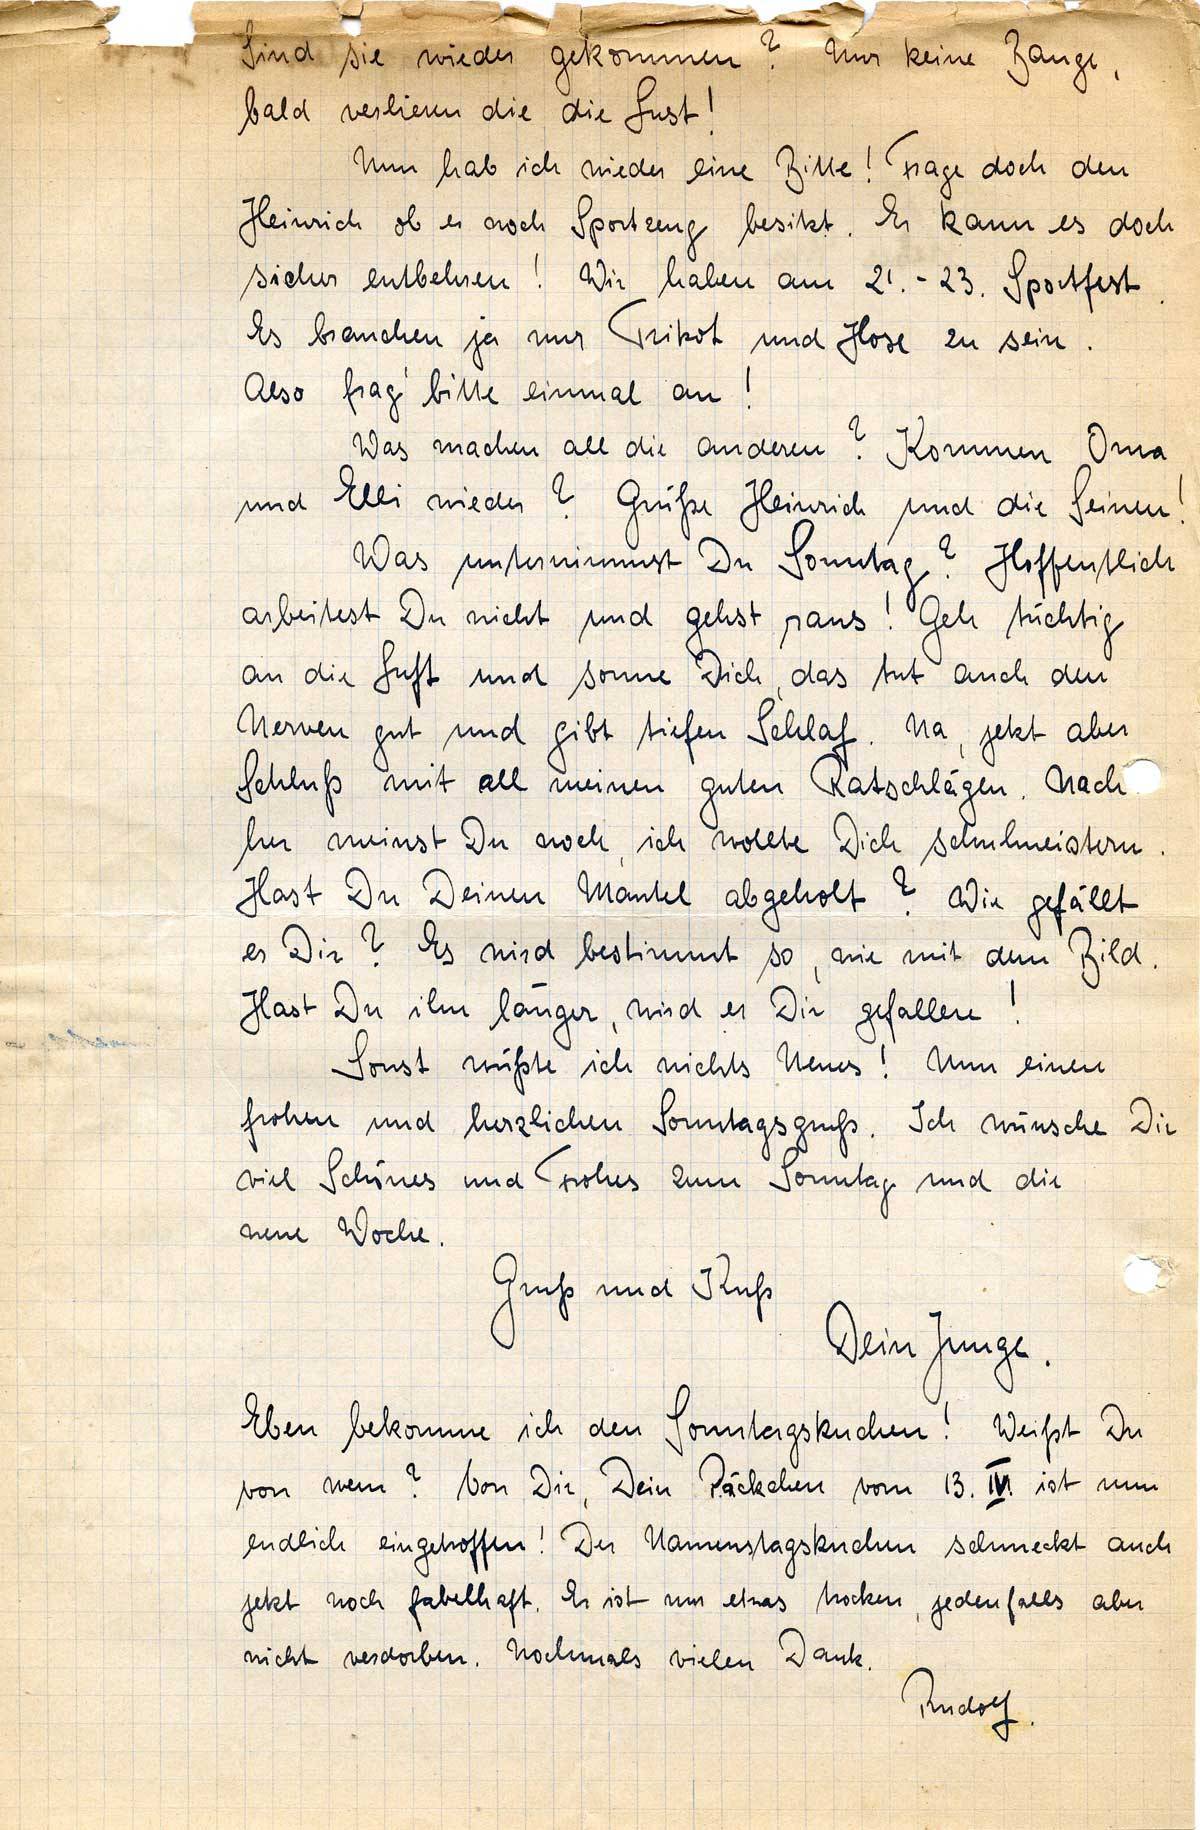 Sind sie wieder gekommen? Nur keine Bange,
bald verlieren die die Lust!
Nun hab ich wieder eine Bitte! Frage doch den
Heinrich ob er noch Sportzeug besitzt. Er kann es doch
sicher entbehren! Wir haben am 21.-23. Sportfest.
Es brauchen ja nur Trikot und Hose zu sein.
Also frag' bitte einmal an!
Was machen all die anderen? Kommen Oma
und Elli wieder? Grüße Heinrich und die Seinen!
Was unternimmst Du Sonntag? Hoffentlich
arbeitest Du nicht und gehst raus! Geh tüchtig
an die Luft und sonne Dich, das tut auch den
Nerven gut und gibt tiefen Schlaf. Na, jetzt aber
Schluß mit all meinen guten Ratschlägen. Nach
her meinst Du noch, ich wollte Dich schulmeistern.
Hast Du Deinen Mantel abgeholt? Wie gefällt
er Dir? Es wird bestimmt so, wie mit dem Bild.
Hast Du ihn länger, wird er Dir gefallen!
Sonst wüßte ich nichts Neues! Nun einen
frohen und herzlichen Sonntagsgruß. Ich wünsche Dir
viel Schönes und Frohes zum Sonntag und die
neue Woche.
Gruß und Kuß
Dein Junge.
Eben bekomme ich den Sonntagskuchen! Weißt Du
von wem? Von Dir, Dein Päckchen vom 13. IV. ist nun
endlich eingetroffen! Der Namenstagskuchen schmeckt auch
jetzt noch fabelhaft. Er ist nur etwas trocken, jedenfalls aber
nicht verdorben. Nochmals vielen Dank.
Rudolf.